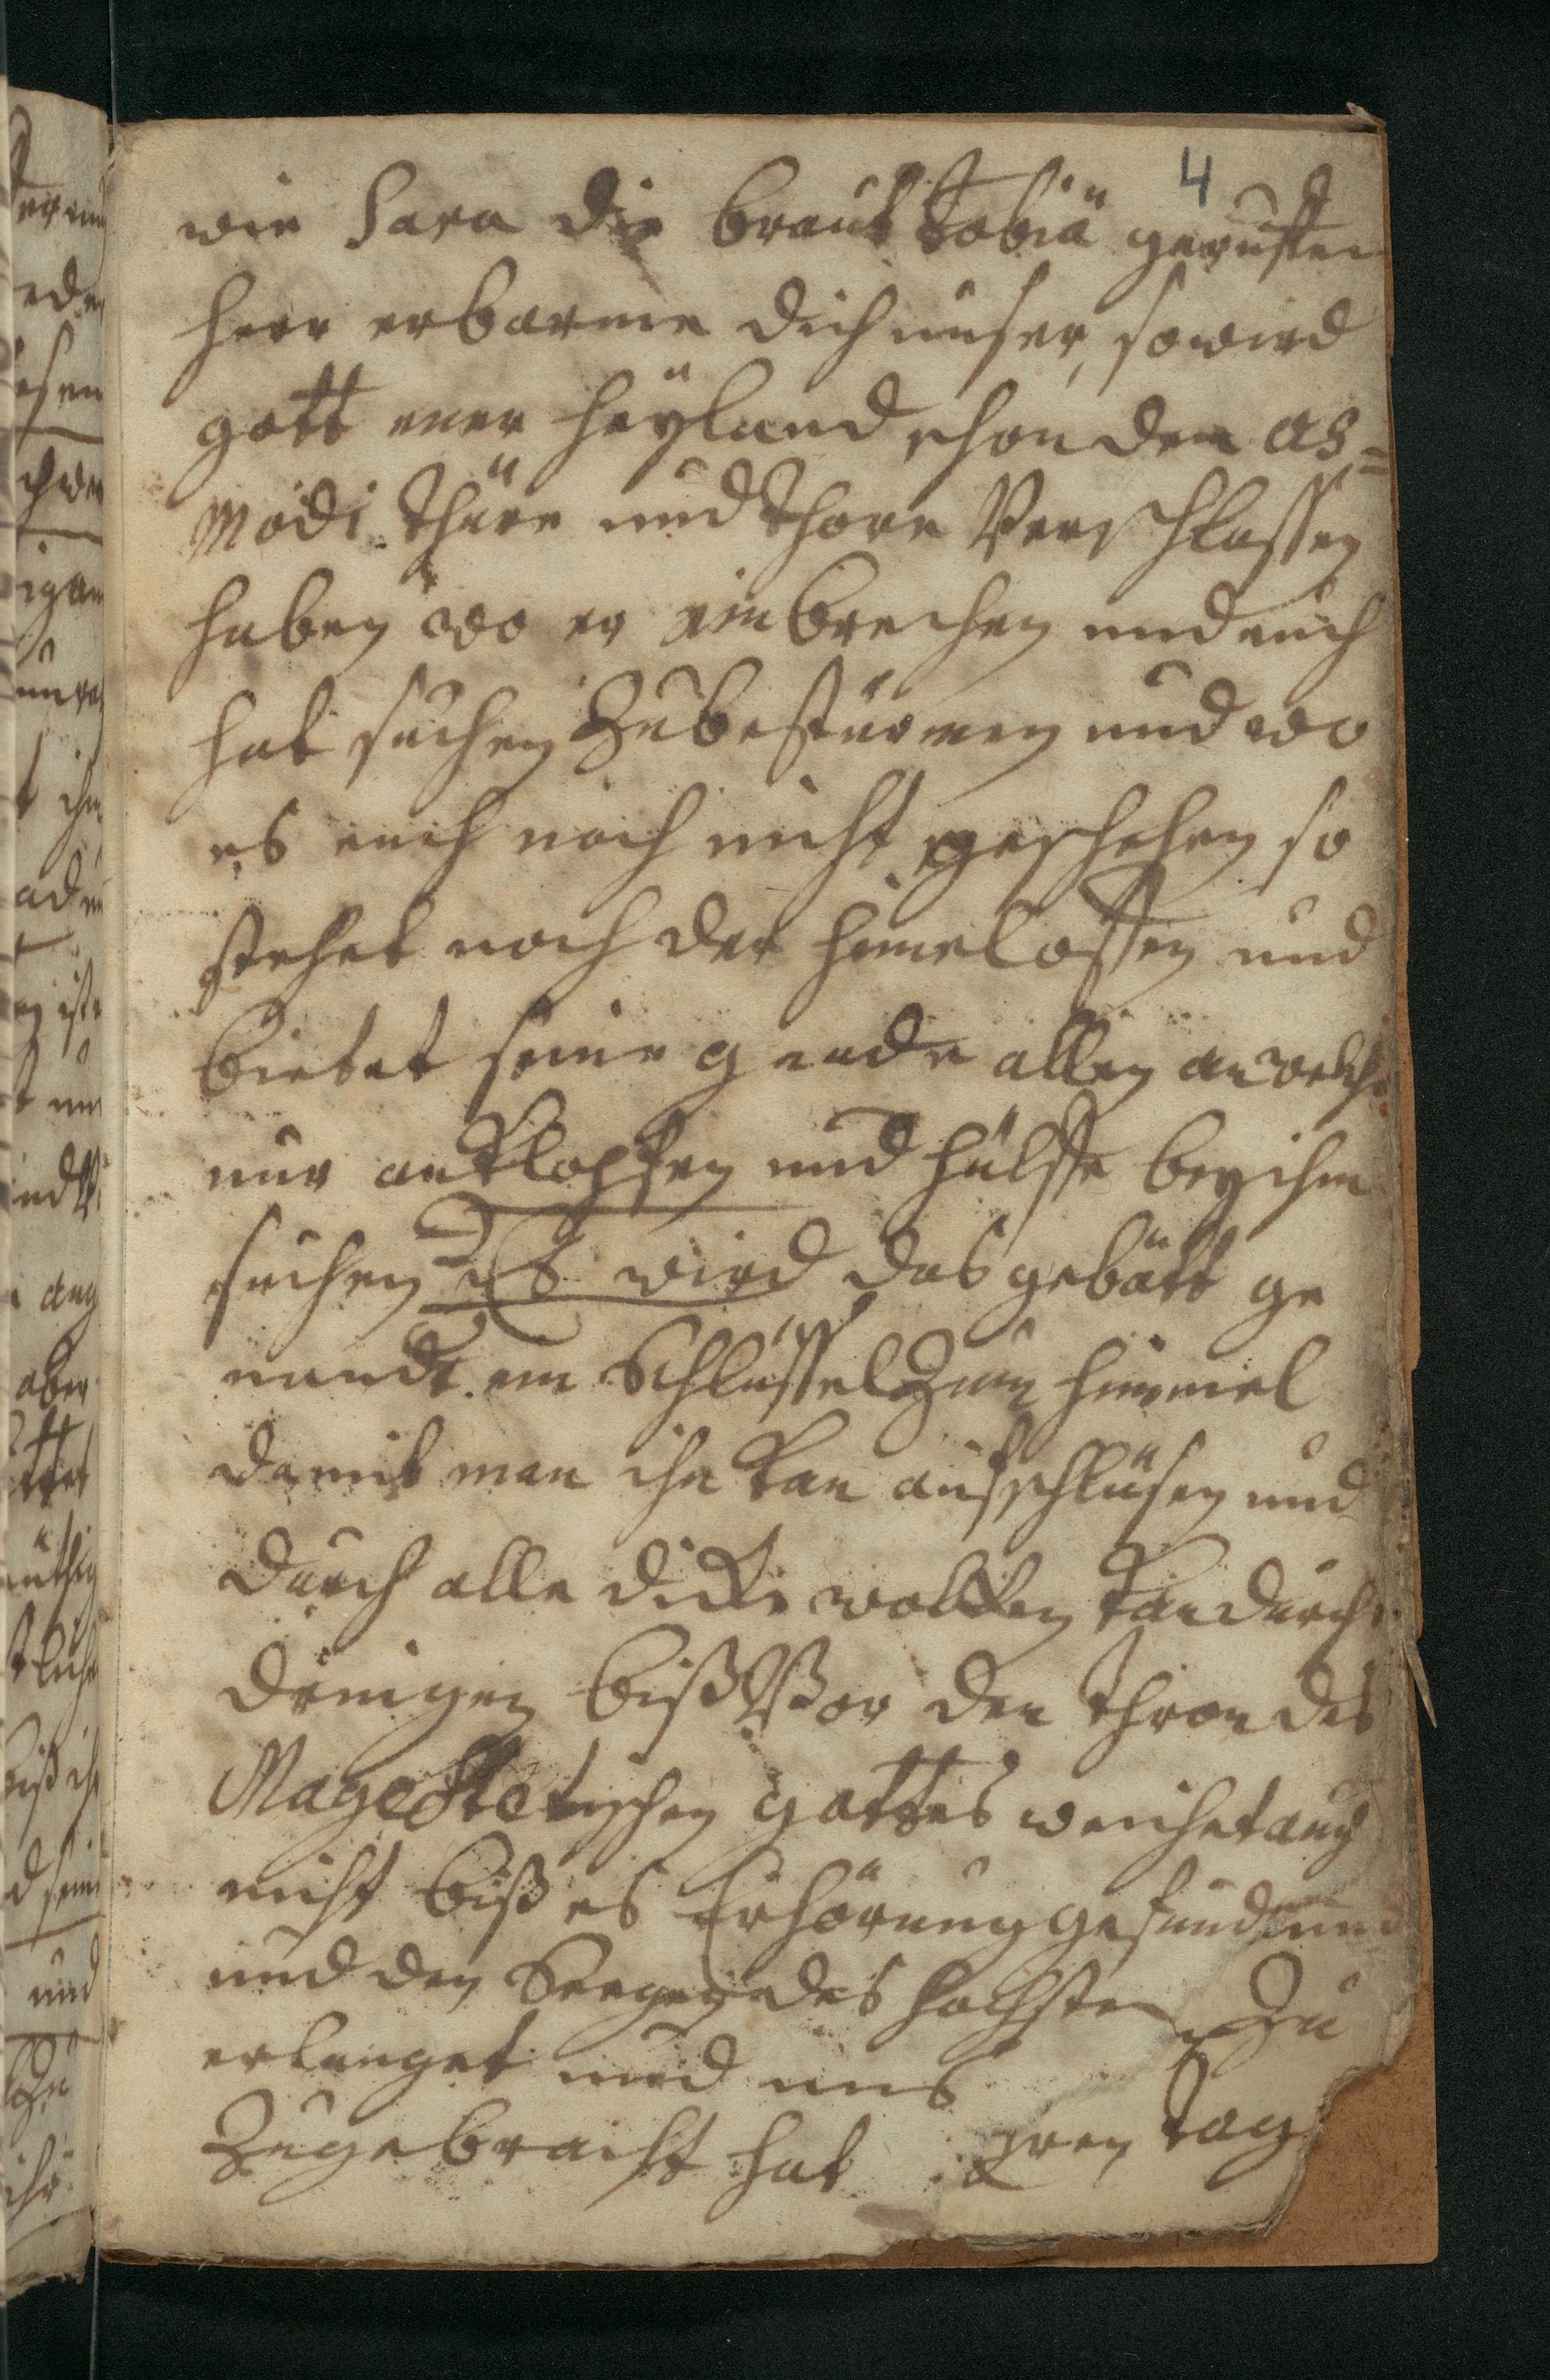 4
wie Sara die braut Tobiä geruffen
herr erbarme dich unser, so wird
gott euer heÿland schon den as=
modi thüre und thore Verschlossen
haben wo er einbrechen und euch
hat suchen Zubestürmen und wo
es euch noch nicht geschehen so
stehet noch der himel offen und
bietet seine gnade allen an welche
nur anklopfen und hülffe beÿ ihm
suchen Es wird das gebätt ge
nandt ein Schlüssel Zum himmel
damit man ihn kan aufschlüsen und
durch alle dicke wolken kan durch
dringen biß Vor den thron des
Magestetischen gottes weichet auch
nicht biß es Erhörung gefunden
und den Seegen des höchsten Zu
erlanget und uns
Zugebracht hat tag